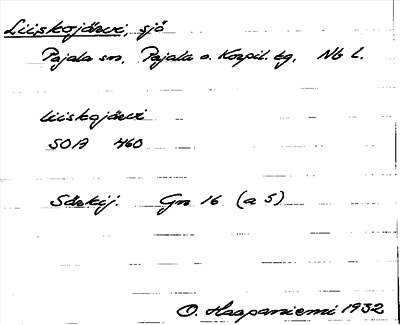 Liiskojärvi, sjö
Pajala sn, Pajala o. Korpil. tg, Nb l.
liiskojärvi
SOA 460
Särkij. Gn 16 (a 5)
O. Haapaniemi 1932